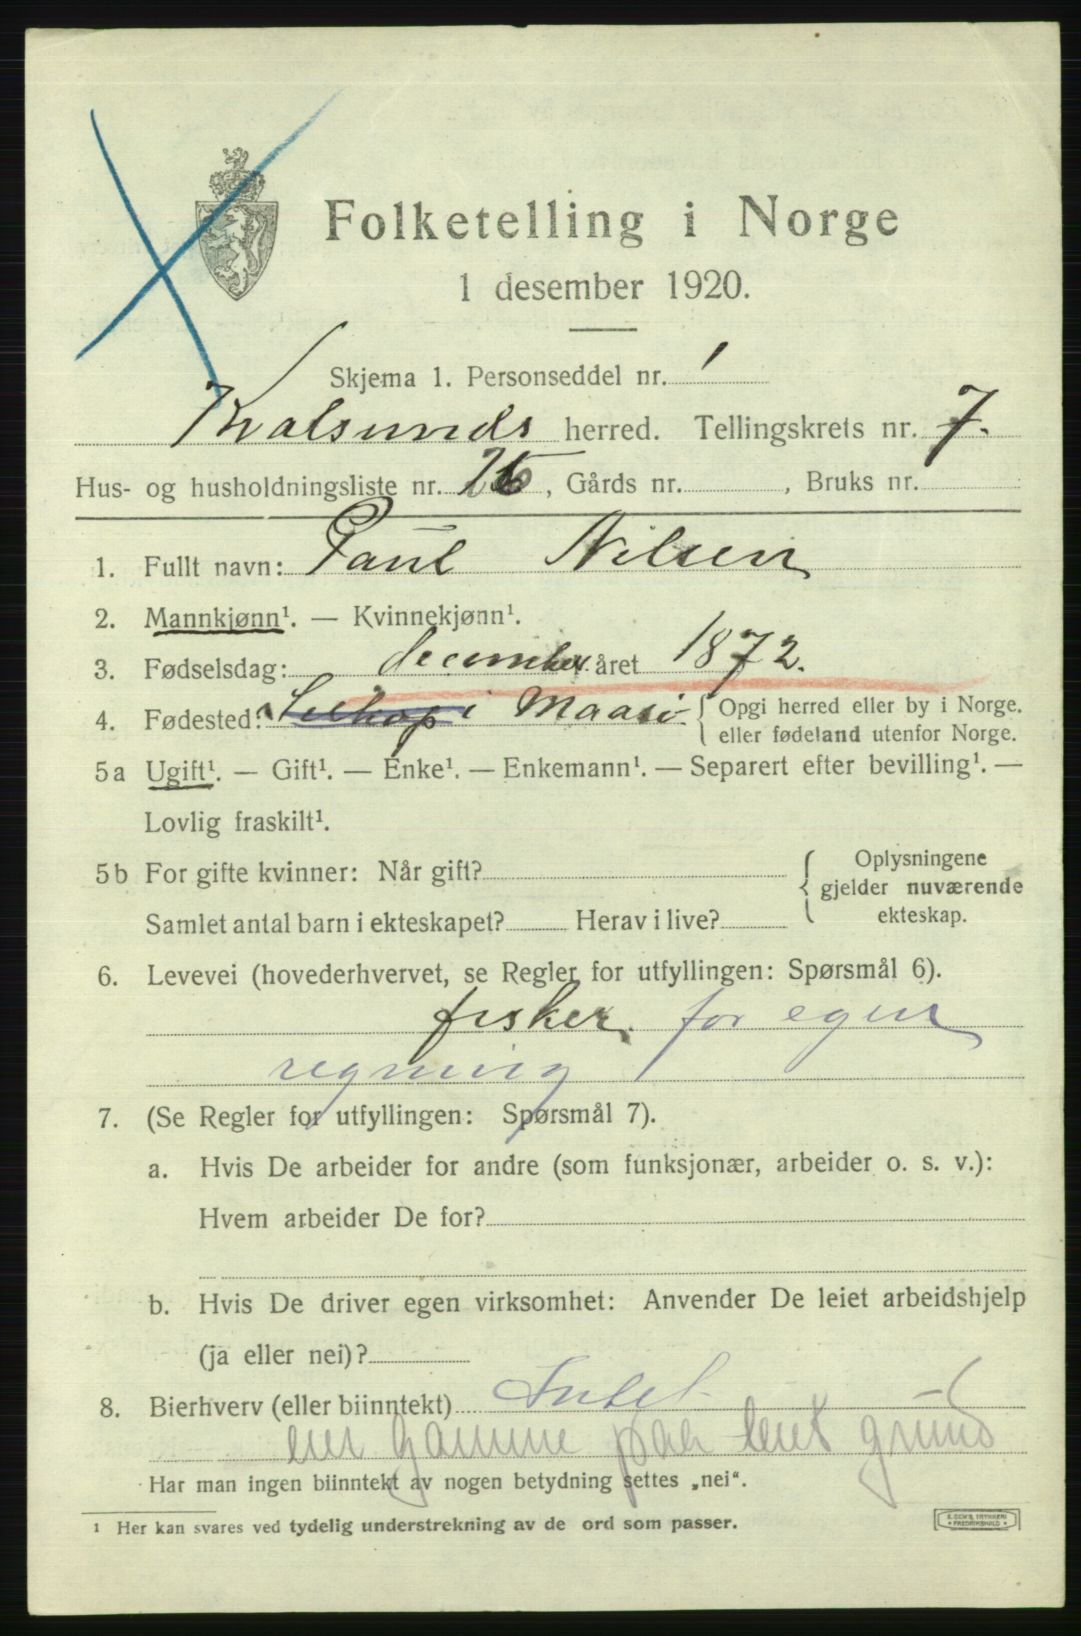 Folketelling i Norge
1 desember 1920.
Skjema 1. Personseddel nr. 1
Kvalsunds herred. Tellingskrets nr. 7.
Hus- og husholdningsliste nr. , Gårds nr. , Bruks nr.
1. Fullt navn: Paul Nilsen
2. Mannkjønn¹. — Kvinnekjønn¹.
3. Fødselsdag: december året 1872.
4. Fødested: i Maasø { Opgi herred eller by i Norge,
eller fødeland utenfor Norge.
5a Ugift¹. — Gift¹. — Enke¹. — Enkemann¹. — Separert efter bevilling¹. —
Lovlig fraskilt¹.
5b For gifte kvinner: Når gift? { Oplysningene
gjelder nuværende
ekteskap.
Samlet antal barn i ekteskapet? Herav i live?
6. Levevei (hovederhvervet, se Regler for utfyllingen: Spørsmål 6).
fisker. for egen
regning
7. (Se Regler for utfyllingen: Spørsmål 7).
a. Hvis De arbeider for andre (som funksjonær, arbeider o. s. v.):
Hvem arbeider De for?
b. Hvis De driver egen virksomhet: Anvender De leiet arbeidshjelp
(ja eller nei)?
8. Bierhverv (eller biinntekt) Intet
eier Gamme paa leiet grund
Har man ingen biinntekt av nogen betydning settes „nei“.
¹ Her kan svares ved tydelig understrekning av de ord som passer.